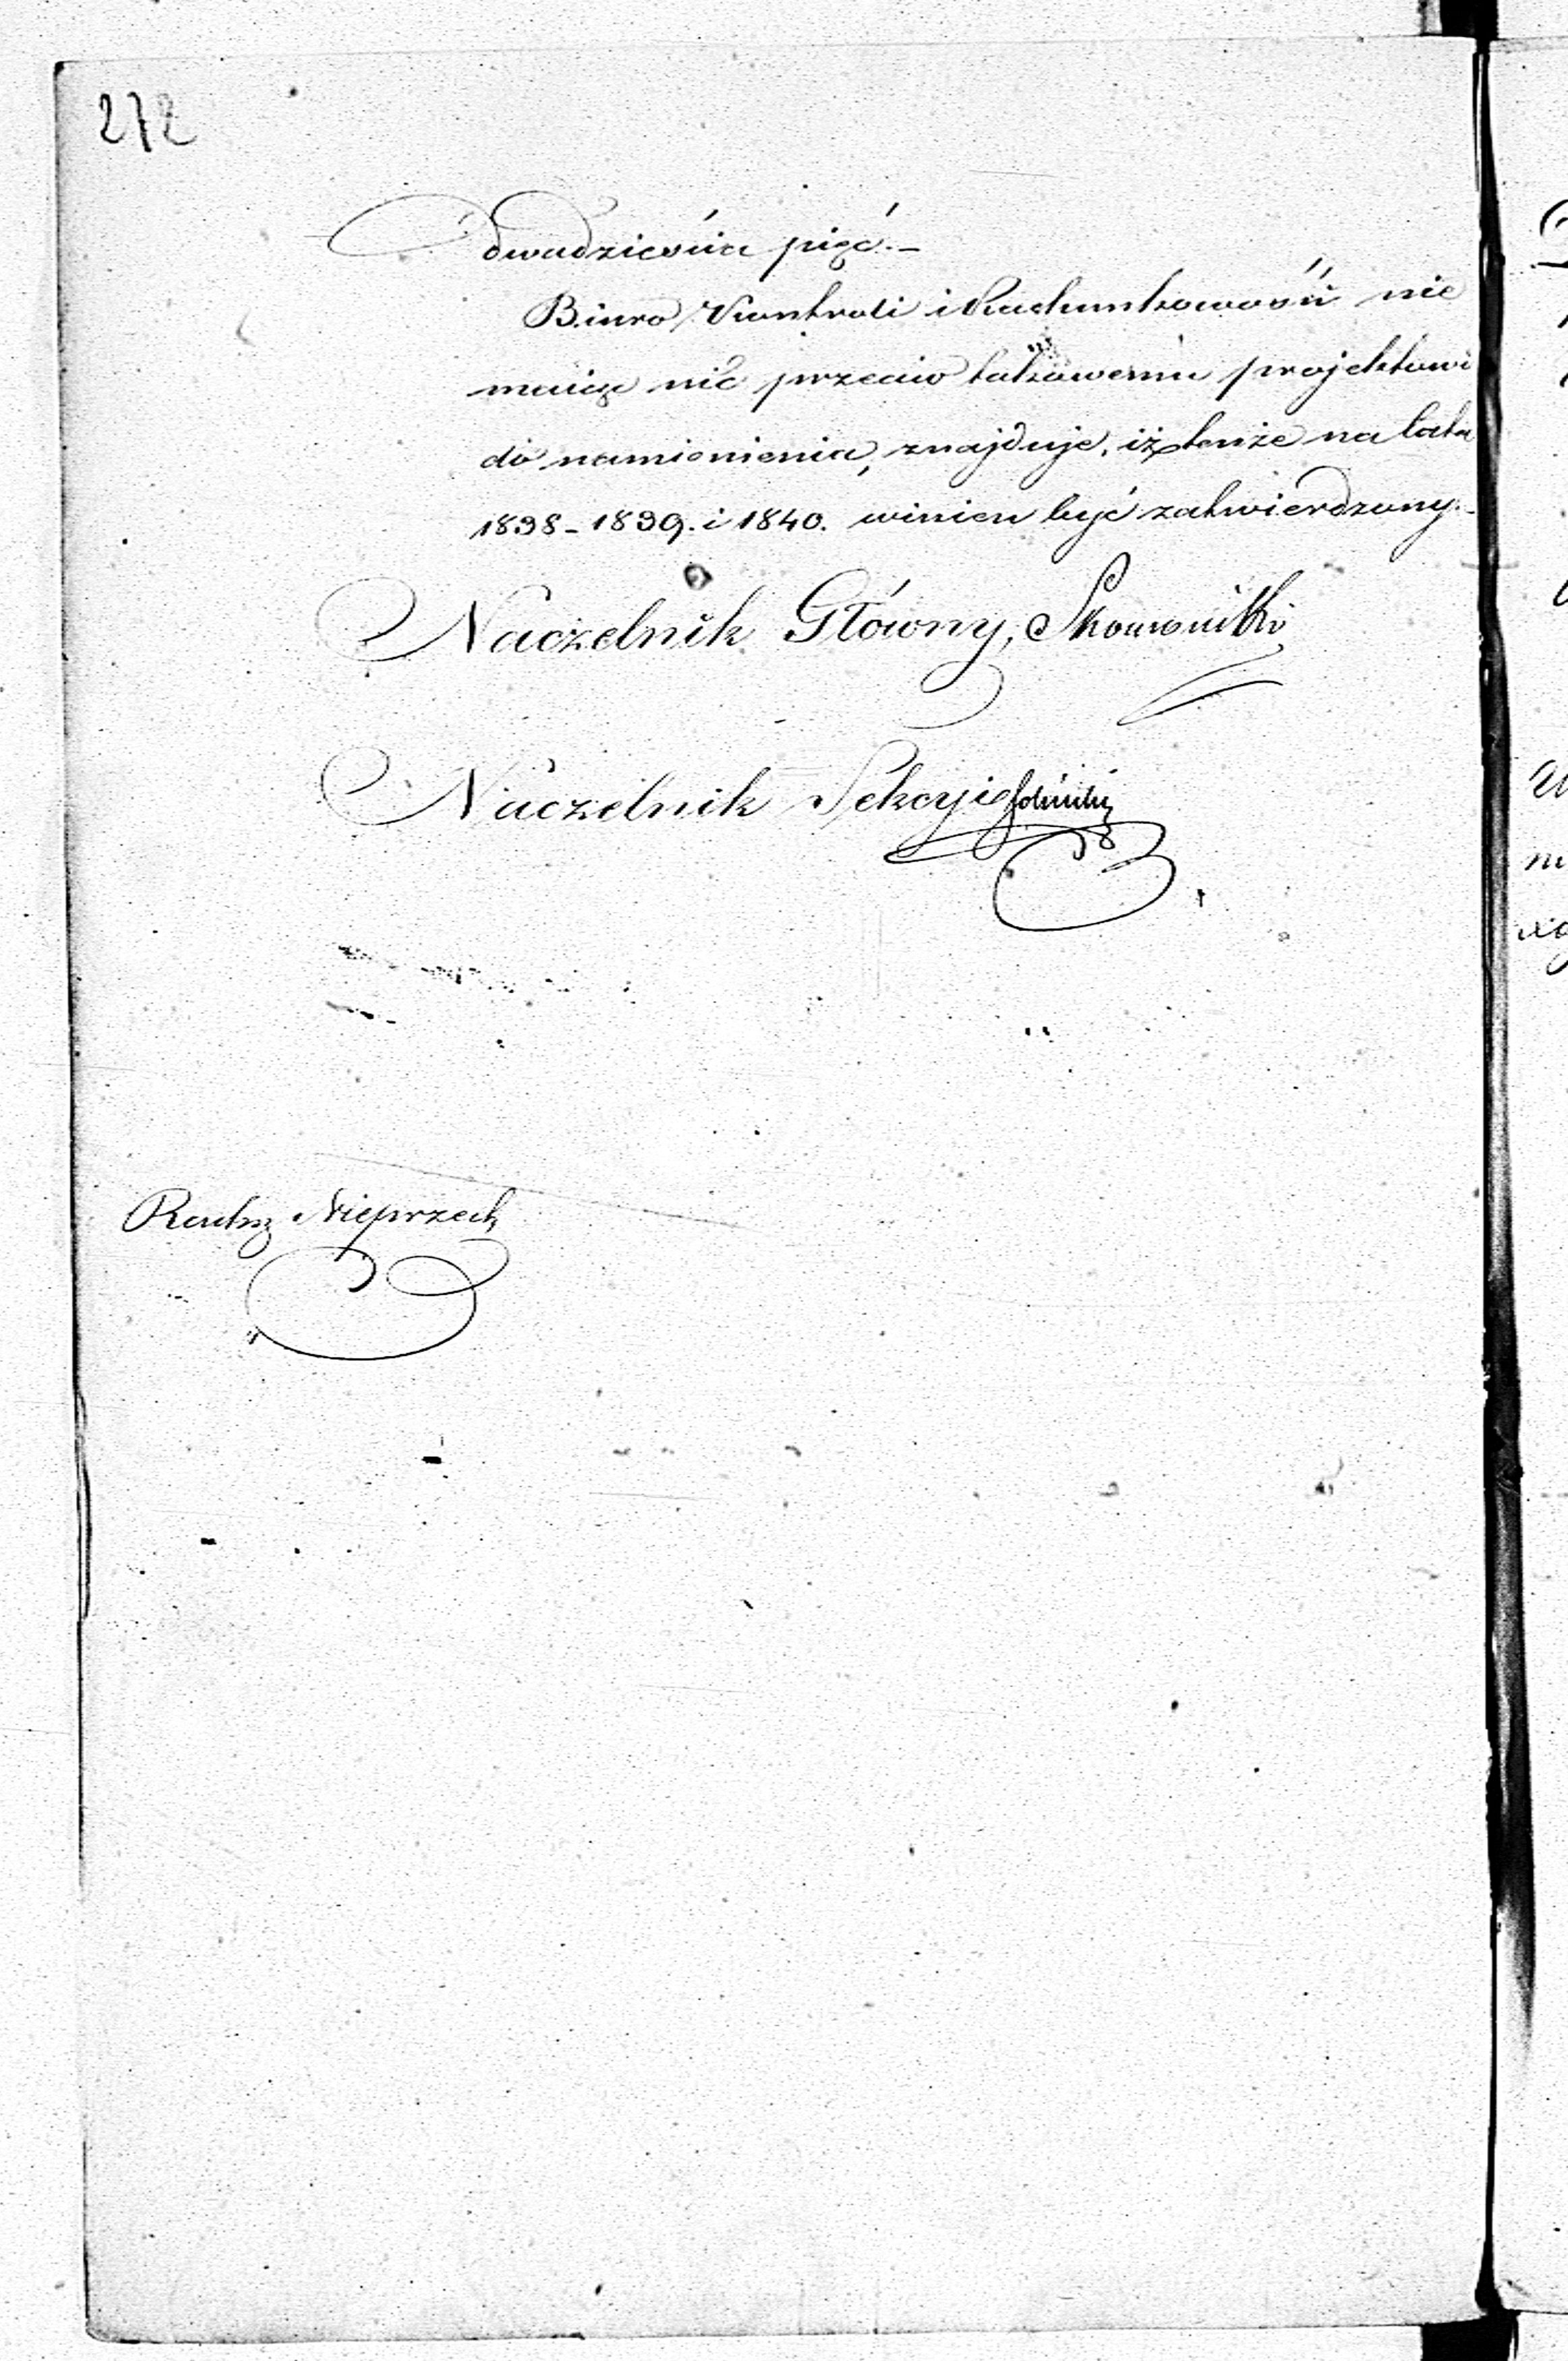 272
dwadzieścia pięć.–
Biuro Kontroli i Rachunkowości nie
maiąc nic przeciw takowemu projektowi
do namienienia, znajduje, iż tenże na lata
1838 – 1839. i 1840. winien być zatwierdzony.–
Naczelnik Główny,
Naczelnik Sekcyi
Nieprzeck